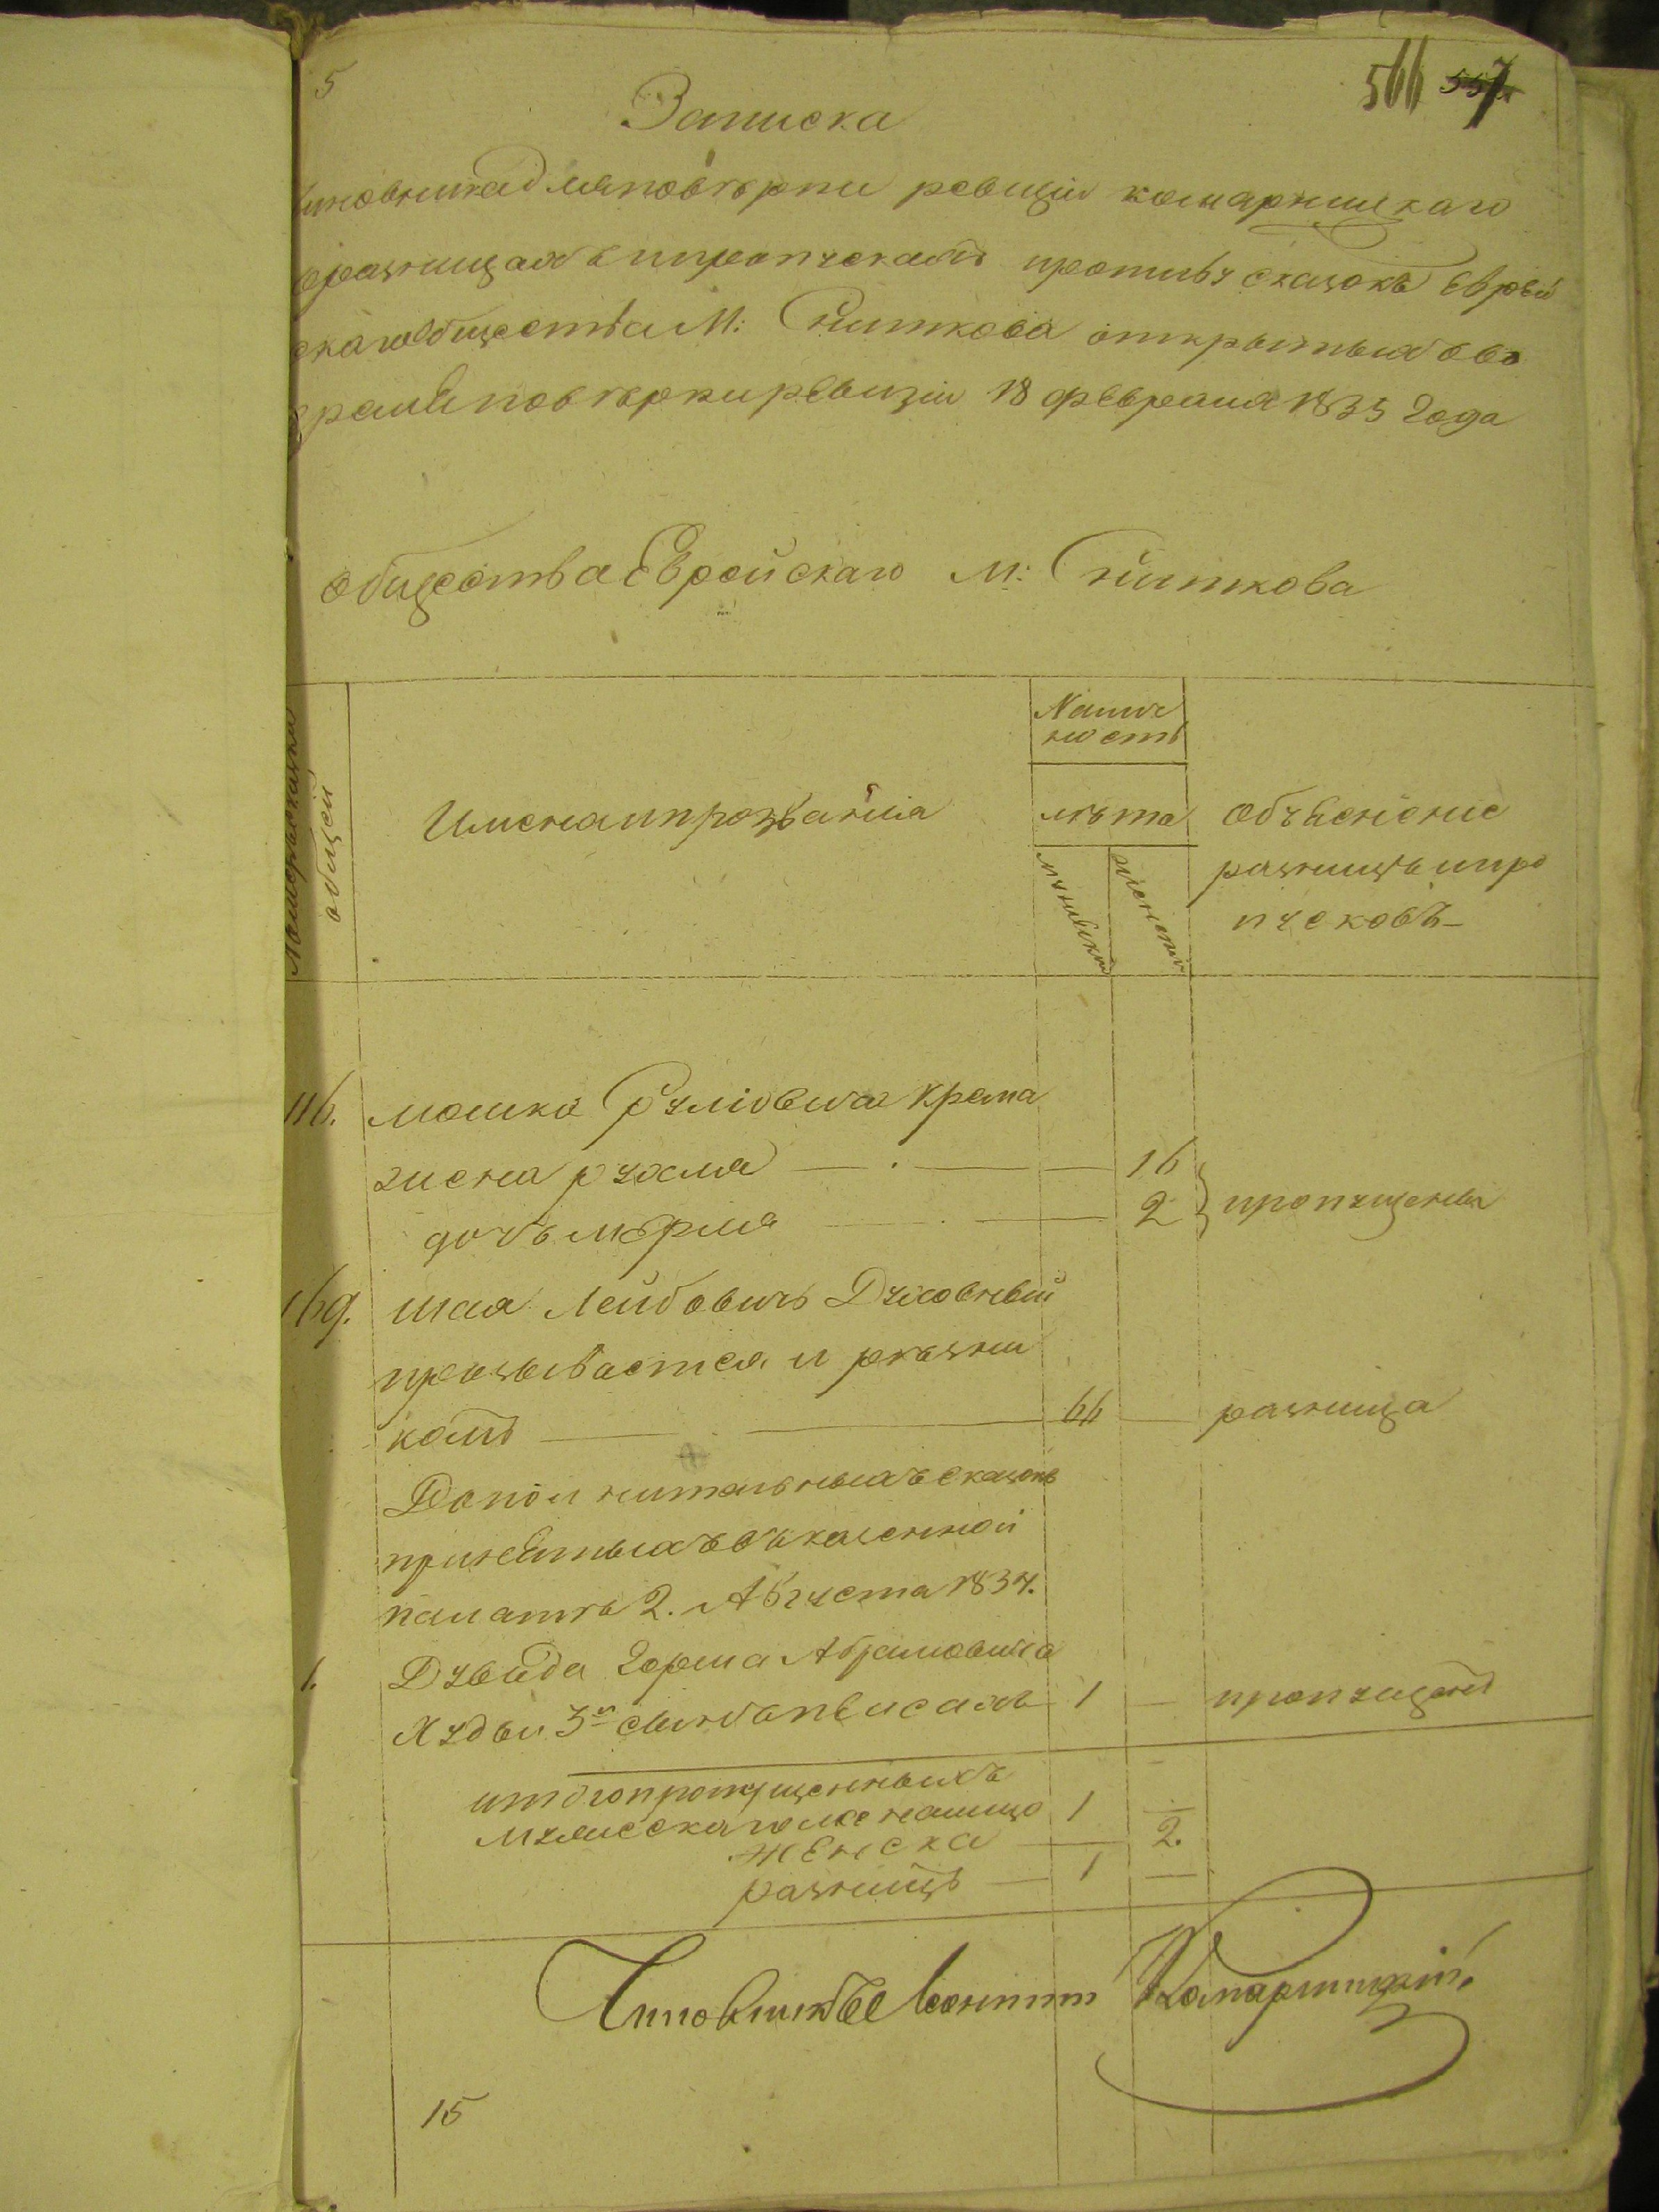 5
566 557
Записка
иновника для поверки ревизіи комарницкаго
оразницах и пропускахъ противу сказокъ Еврей
скаго Общества М: Сниткова открытых во
время поверки ревизіи 18 февраля 1835 года
Общества Еврейскаго М: Сниткова
Номеръ сказки
общей
Имена и прозванія
Налич
ность
лета
мужеск
женски
Объяснение
разницъ и про
пусковъ
116. мошка Рулiовича Крама
жена рухля 16
дочь мѣрма 2 } пропущены
169. шая Лейбовичъ Духовный
прозывается и резни
комъ 66 разница
Дополнительныхъ сказокъ
принятыхъ въ казенной
палатѣ 2. Августа 1834.
1. Дувида Герша Абрамовича
Худы 3й сынъ 1 пропущенъ
итого пропущенныхъ
мужескаго 1
женска 2.
разницъ 1
Чиновникъ Комарницкій
15